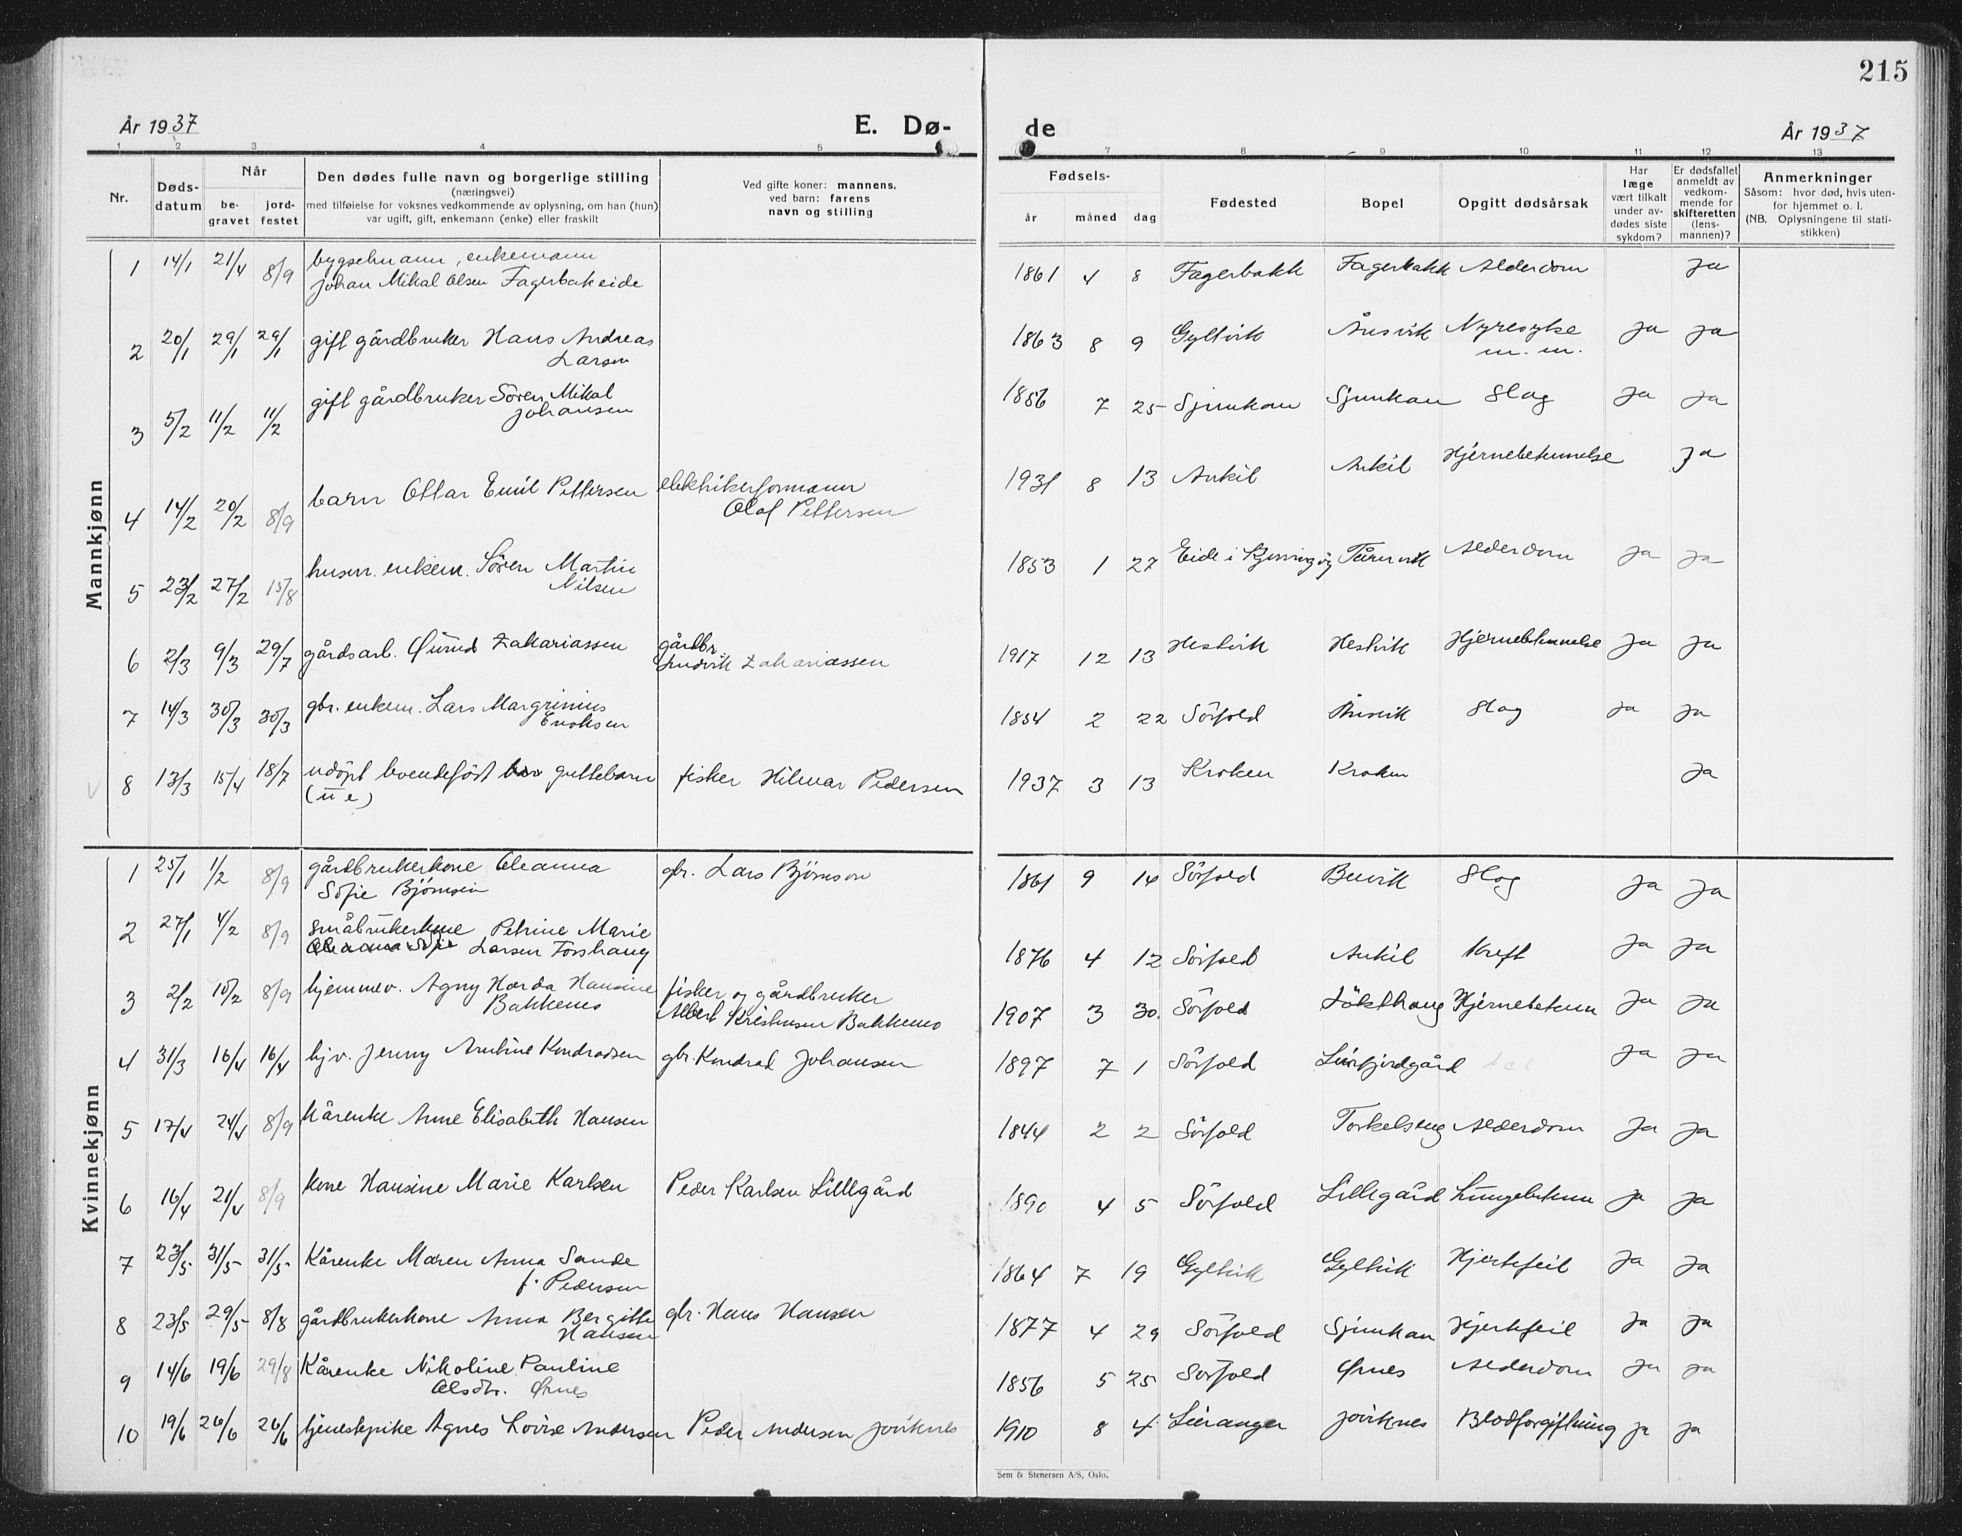 215
År 1937
E. Dø-
de
År 1937
1 2 3 4 5 7 8 9 10 11 12 13
Nr.
Døds-
datum
Når
be-
gravet
jord-
festet
Den dødes fulle navn og borgerlige stilling
(næringsvei)
med tilføielse for voksnes vedkommende av oplysning, om han (hun)
var ugift, gift, enkemann (enke) eller fraskilt
Ved gifte koner: mannens,
ved barn: farens
navn og stilling
Fødsels-
år måned dag
Fødested
Bopel
Opgitt dødsårsak
Har
læge
vært tilkalt
under av-
dødes siste
sykdom?
Er dødsfallet
anmeldt av
vedkom-
mende for
skifteretten
(lens-
mannen)?
Anmerkninger
Såsom: hvor død, hvis uten-
for hjemmet o. l.
(NB. Oplysningene til stati-
stikken)
Mannkjønn
1 14/1 21/4 8/9 bygselmann, enkemann 1861 4 8 Fagerbakk Fagerbakk Alderdom ja
Johan Mikal Olsen Fagerbakeide
2 20/1 29/1 29/1 gift gårdbruker Hans Andreas 1863 8 9 Gyltvik Ånsvik Nyresyke ja ja
Larsen m. m.
3 5/2 11/2 11/2 gift gårdbruker Sören Mikal 1856 7 25 Sjunkan Sjunkan Slag ja ja
Johansen
4 14/2 20/2 8/9 barn Ottar Emil Pettersen elektrikerformann 1931 8 13 Ankil Ankil Hjernebetennelse ja
Olaf Pettersen
5 23/2 27/2 15/8 husm. enkem. Sören Martin 1853 1 27 Eide i Tårnvik Alderdom ja ja
Nilsen
6 2/3 9/3 29/7 gårdsarb. Zakariassen gårdbr. 1917 12 13 Hestvik Hestvik Hjernebetennelse ja ja
Zakariassen
7 14/3 30/3 30/3 gbr. enkem. Lars Margrinius 1854 2 22 Sörfold Ånsvik Slag ja ja
Enoksen
8 13/3 15/4 18/7 udöpt levendefödt guttebarn fisker Hilmar Pedersen 1937 3 13 Kroken Kroken ja
(u e)
Kvinnekjønn
1 25/1 1/2 8/9 gårdbrukerkone Oleanna gbr. Lars Björnson 1861 9 14 Sörfold Buvik Slag ja ja
Sofie Björnsen
2 27/1 4/2 8/9 småbrukerkone Petrine Marie 1876 4 12 Sörfold Ankil Kreft ja ja
Oleanna Sofie Larsen Forshaug
3 2/2 10/2 8/9 hjemmev. Agny Harda Hansine fisker og gårdbruker 1907 3 30. Sörfold Lökthaug Hjernebetenn ja ja
Bakkenes Albert Kristensen Bakkenes
4 31/3 16/4 16/4 hjv. Jenny Antine Kondradsen gbr. Kondrad Johansen 1897 7 1 Sörfold Leirfjordgård ja ja
5 17/4 24/4 8/9 kårenke Anne Elisabeth Hansen 1844 2 2 Sörfold Torkelseng Alderdom ja ja
6 16/4 21/4 8/9 kone Hansine Marie Karlsen Peder Karlsen Lillegård 1890 4 5 Sörfold Lillegård Lungebetenn ja ja
7 23/5 31/5 31/5 Kårenke Maren Anna Sande 1864 7 19 Gyltvik Gyltvik Hjertefeil ja ja
f. Pedersen
8 23/5 29/5 8/8 gårdbrukerkone Anna Bergitte gbr. Hans Hansen 1877 4 29 Sörfold Sjunkan Hjertefeil ja ja
Hansen
9 14/6 19/6 29/8 Kårenke Nikoline Pauline 1856 5 25 Sörfold Ørnes Alderdom ja ja
Olsdtr. Ørnes
10 19/6 26/6 26/6 tjenestepike Agnes Lovise Andersen Peder Andersen Joviknes 1910 8 4 Leiranger Joviknes Blodforgiftning ja ja
Sem & Stenersen A/S, Oslo.